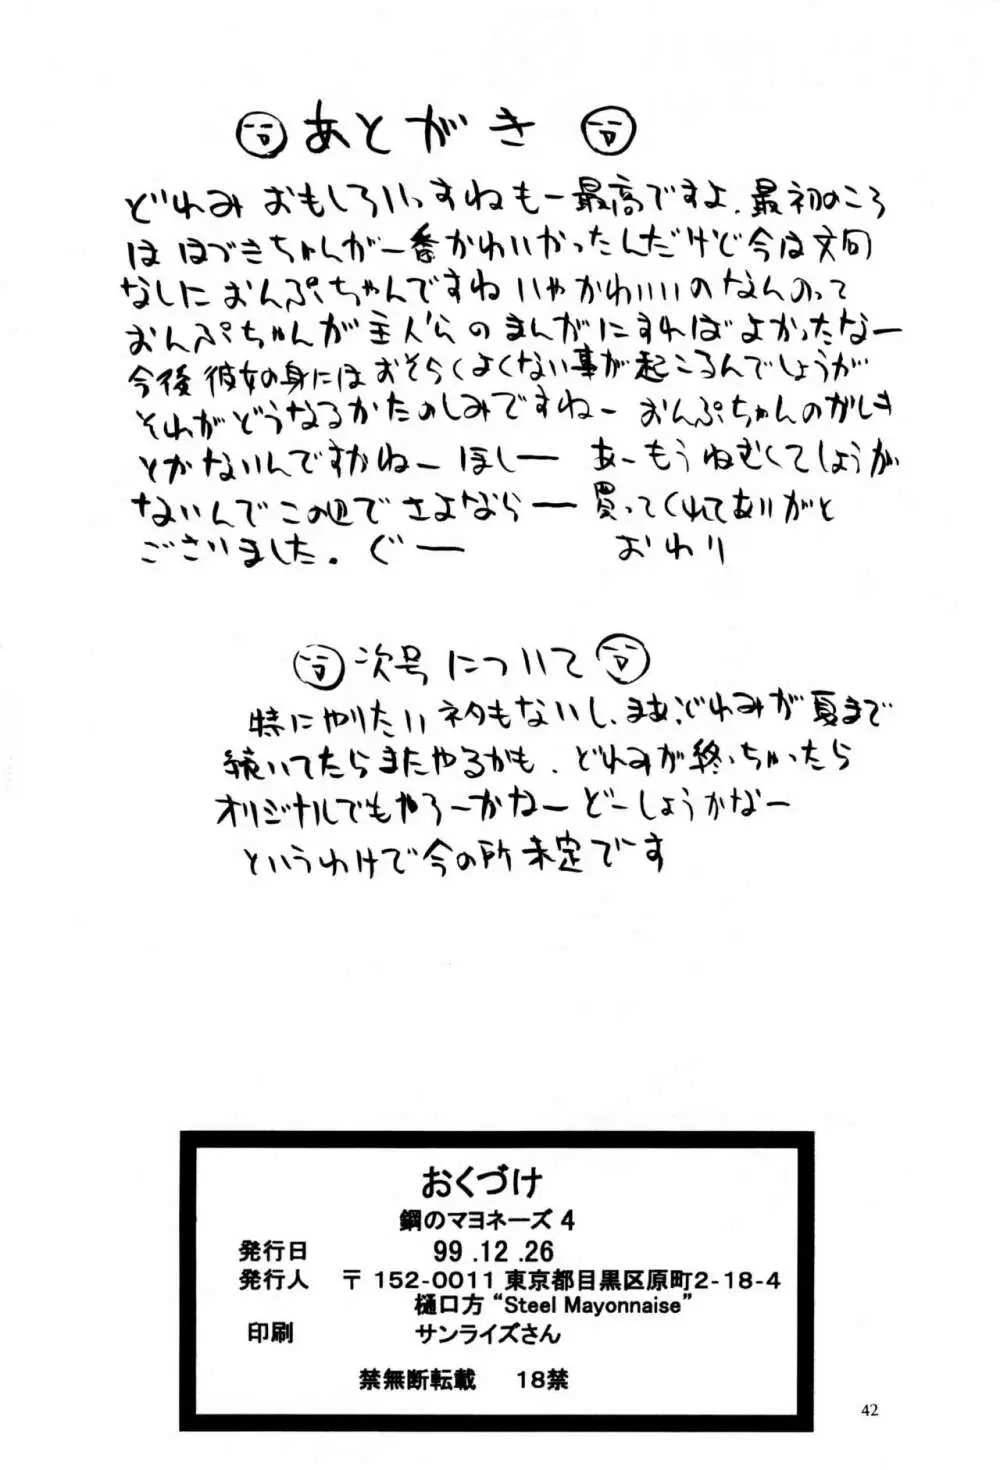 あとがき
どれみ おもしろいっすねもー最高ですよ。最初のころ
は はづきちゃんが一番かわいかったんだけど今は文句
なしにおんぷちゃんですねいやかわいいのなんのって
おんぷちゃんが主人公のまんがにすればよかったなー
今後彼女の身にはおそらくよくない事が起こるんでしょうが
それがどうなるかたのしみですねー おんぷちゃんのがしき
とかないんですかねー ほしー あーもうねむくてしょうが
ないんでこの辺でさよならー 買ってくれてありがと
ございました。ぐー おわり
次号について
特にやりたいネタもないし、まあ、どれみが夏まで
続いてたらまたやるかも。どれみが終っちゃったら
オリジナルでもやろーかなー どーしょうかなー
というわけで今の所未定です
おくづけ
鋼のマヨネーズ 4
発行日 99.12.26
発行人 〒152-0011 東京都目黒区原町2-18-4
樋口方 “Steel Mayonnaise”
印刷 サンライズさん
禁無断転載 18禁
42